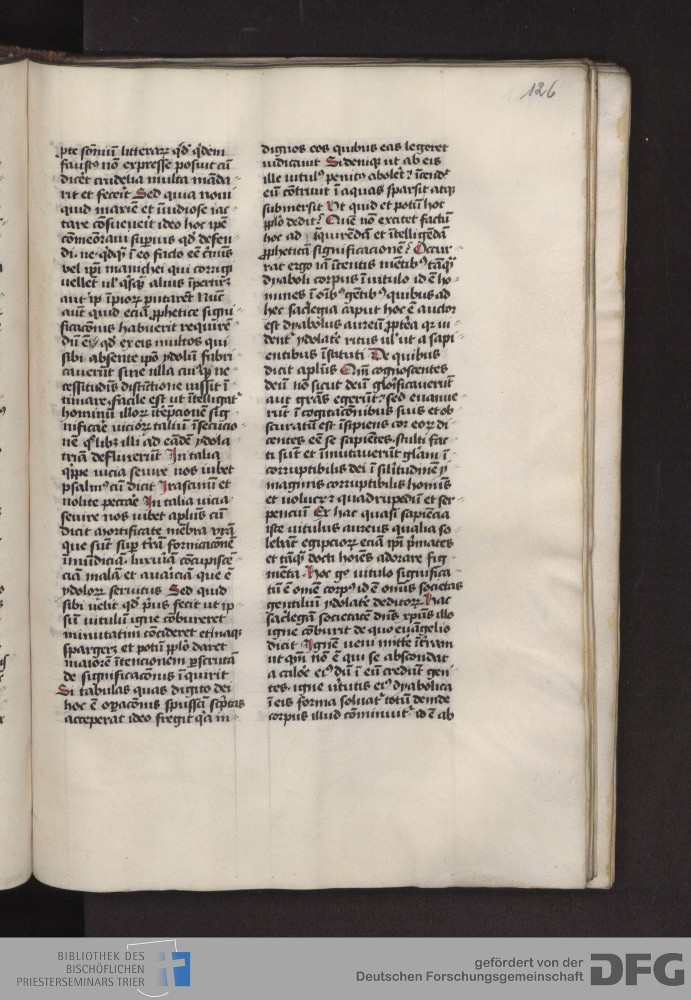 126
pte som̄niū litterarꝝ qd̓ q̓dem
faustꝰ nō expresse posuit cū
dicet̓ crudelia multa mā̄da
rit et fecerit Sed quia noui
quid maxīe et īuidiose iac
tare cōsueueit ideo hoc ip̄e
cōmēoraui suꝑius qd̓ defen
di
vel ip̄i manichei qui corrigi
aut ip̄
aūt quid eciā ꝓphetice signi
ficacōnis habuerit requirē
dū ē qd̓ ex eis multos qui
sibi absente ip̄o ydolū fabri
cauerūt sine ulla
cessitudīs distīctione iussit ī
timare facile est ut ītelligat̓
hominū illorꝝ īt̓epcionem sig̅
nificare viciorꝝ taliū īsecucio
nē illi ad eādē ydola
triā defluxerūt In talia
q̓ppe vicia seuire nos iubet
psalmꝰ cū dicit Irascimī et
nolite peccare In talia vicia
seuire nos iubet apl̄us cū
dicit Mortificate mēbra vr̄a
que sūt suꝑ t̓rā fornicacōnē
īmūdiciā luxuriā cōcupiscē
ciā malā et auariciā que ē
ydolorꝝ seruitus Sed quid
sibi uelit qd̓ p̓us fecit ut ip̄
sū uitulū igne cōbureret
minutatim cōcideret et ī aq̄
spargeret et potū pp̄lo daret
maiorē ītencionem
de significacōnis īquirit
Si tabulas quas digito dei
hoc ē oꝑacōnis sp̄ussā sc̓ptas
acceperat ideo fregit q̓a in
dignos eos quibus eas legeret
iudicauit Si deniqꝫ ut ab eis
ille uitulꝰ penitꝰ abolet̓ īcendit
eū cōtriuit ī aquas sparsit atqꝫ
submersit Vt quid et potū hoc
pp̄lo dedit? Quē nō excitet factū
hoc ad īquirēdā et ītelligēdā
ꝓpheticā significacionē? Occur
rat ergo iā ītentis mētibꝰ tāqꝫ̄
dyaboli corpus ī uitulo id ē ho
mines ī oīb̓ gētibꝰ quibus ad
hec sac̓legia caput hoc ē auctor
est dyabolus aureū ꝓpt̓ea qꝫ ui
dent̓ ydolat̓e ritus ul̓ ut a sapi
entibus īstituti De quibus
dicit apl̄us Qm̄ cognoscentes
deū nō sicut deū glorificauerūt
aut grās egerūt sed euanue
rūt ī cogitacōnibus suis et ob
scuratū est īsipiens cor eorꝝ di
centes eē se sapiētes stulti fac
ti sūt et īmutauerūt glaī̄ ī
corruptibilis dei ī sil̓itudinē
imaginis corruptibilis homīs
et volucrꝝ ⁊ quadrupediū et ser
penciū Ex hac quasi sapiēcia
iste uitulus aureus qualia so
lebāt egipciorꝝ eciā ip̄i p̓mates
et tāqꝫ̄ docti hoīes adorare fig
mēta Hoc gͦ uitulo significa
tū ē omē corpꝰ id ē omīs societas
gentiliū ydolat̓e deditorꝝ Hāc
sac̓legā societatē dn̄s xp̄us illo
igne cōburit de quo euāgelio
dicit Ignē ueni mitt̓e ī t̓ram
ut qm̄ nō ē qui se abscondat
a calōe eiꝰ dū ī eū credūt gen
tes igne v̓tutis eiꝰ dyabolica
ī eis forma soluat̓ totū deinde
corpus illud cōminuit̓ id ē ab
BIBLIOTHEK DES
BISCHÖFLICHEN
PRIESTERSEMINARS TRIER
gefördert von der
Deutschen Forschungsgemeinschaft
DFG